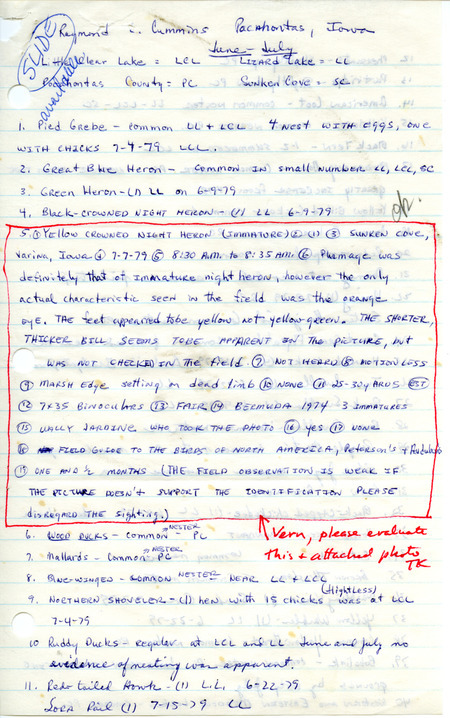 Raymond L. Cummins Pocahontas, Iowa
June-July
SLIDE
available
Little Clear Lake = LCL Lizard Lake = LL
Pocahontas County = PC Sunken Cove = SC
1. Pied Grebe - common LL + LCL 4 nest with eggs, one
with chicks 7-4-79 LCL.
2. Great Blue Heron - common in small number LL, LCL, SC
3. Green Heron - (1) LL on 6-9-79
4. Black-crowned night heron - (1) LL 6-9-79
5. ① Yellow crowned night heron (immature) ② (1) ③ Sunken Cove,
Varina, Iowa ④ 7-7-79 ⑤ 8:30 A.M. to 8:35 A.M. ⑥ Plumage was
definitely that of immature night heron, however the only
actual characteristic seen in the field was the orange
eye. The feet appeared to be yellow not yellow green. The shorter,
thicker bill seems to be apparent in the picture, but
was not checked in the field. ⑦ Not heard ⑧ motionless
⑨ marsh edge setting on dead limb ⑩ None ⑪ 25-30 yards EST
⑫ 7x35 Binoculars ⑬ Fair ⑭ Bermuda 1974 3 immatures
⑮ Wally Jardine who took the photo ⑯ yes ⑰ none
⑱ Field Guide to the Birds of North America, Peterson's + Audubon
⑲ one and ½ months (The field observation is weak if
the picture doesn't support the identification please
disregard the sighting.)
6. Wood Ducks - common NESTER - PC
7. Mallards - common NESTER PC
8. Blue-winged - common NESTER near LL + LCL
(flightless)
9. Northern Shoveler - (1) hen with 15 chicks was at LCL
7-4-79
10. Ruddy Ducks - regular at LCL and LL June and July no
evidence of nesting was apparent.
11. Red tailed Hawk - (1) LL 6-22-79
Sora Rail (1) 7-15-79 LL
Vern, please evaluate
this + attached photo
TK